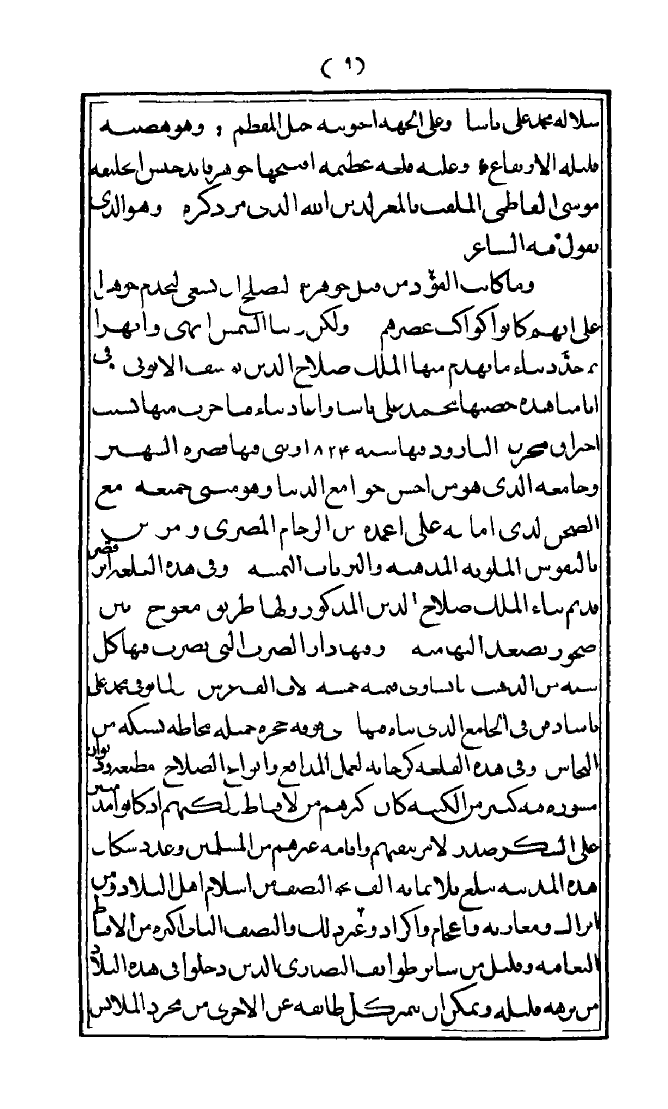 (٩)
سلاله محمد على باشا وعلى الجهه الجنوبيه جبل المقطم وهو هضبه
قليله الارتفاع وعليه قلعه عظيمه افتتحها جوهر قايد جيش الخليفه
موسى الفاطمى الملقب بالمعز لدين الله الذى مر ذكره وهو الذى
يقول فيه الشاعر
وما كانت من قبل جوهر لتصلح ان تسعى لتخدم جوهرا
على انهم كانوا كواكب عصرهم ولكن راينا الشمس ابهى وابهرا
جدّد بناء ما تهدم منها الملك صلاح الدين يوسف الايوبى فى
ايامنا هذه حصنها محمد على باشا واعاد بناء ما خرب منها بسبب
احتراق مخزن البارود بها سنه ١٨٢٤ وبنى فيها قصره الشهير
وجامعه الذى هو من احسن جوامع الدنيا وهو مبنى جميعه مع
الصحن لدى امامه على اعمده من الرخام المصرى ومزين
بالنقوش الملونه المذهبه والثريات الثمينه وفى هذه القلعه اثر قصر
قديم بناء الملك صلاح الدين المذكور ولها طريق معوج بين
صخور يصعد اليها منه وفيها دار الضرب التى يضرب فيها كل
سنه من الذهب ما يساوى قيمه خمسه لاف الف قرش لما توفى محمد على
باشا دفن فى الجامع الذى بناه فيها فى حجره جميله محاطه بشبكه من
النحاس وفى هذه القلعه كرخانه لعمل المدافع وانواع السلاح مطبعه
من الكتبه كان اكثرهم من لاقباط لكنهم اذ كانوا
على السكر صدر لامر بنفيهم واقامه غيرهم من المسلمين وعدد سكان
هذه المدينه يبلغ ثلاثمايه الف النصف من اسلام اهل البلاد ومن
اتراك ومغاربه واعجام واكراد وغير ذلك والنصف الثانى اكثره من الاقباط
اليعاقبه وقليل من سائر طوائف النصارى الذين دخلوا فى هذه البلاد
من برهه قليله ويمكن ان يميز كل طائفه عن الاخرى من مجرد الملابس